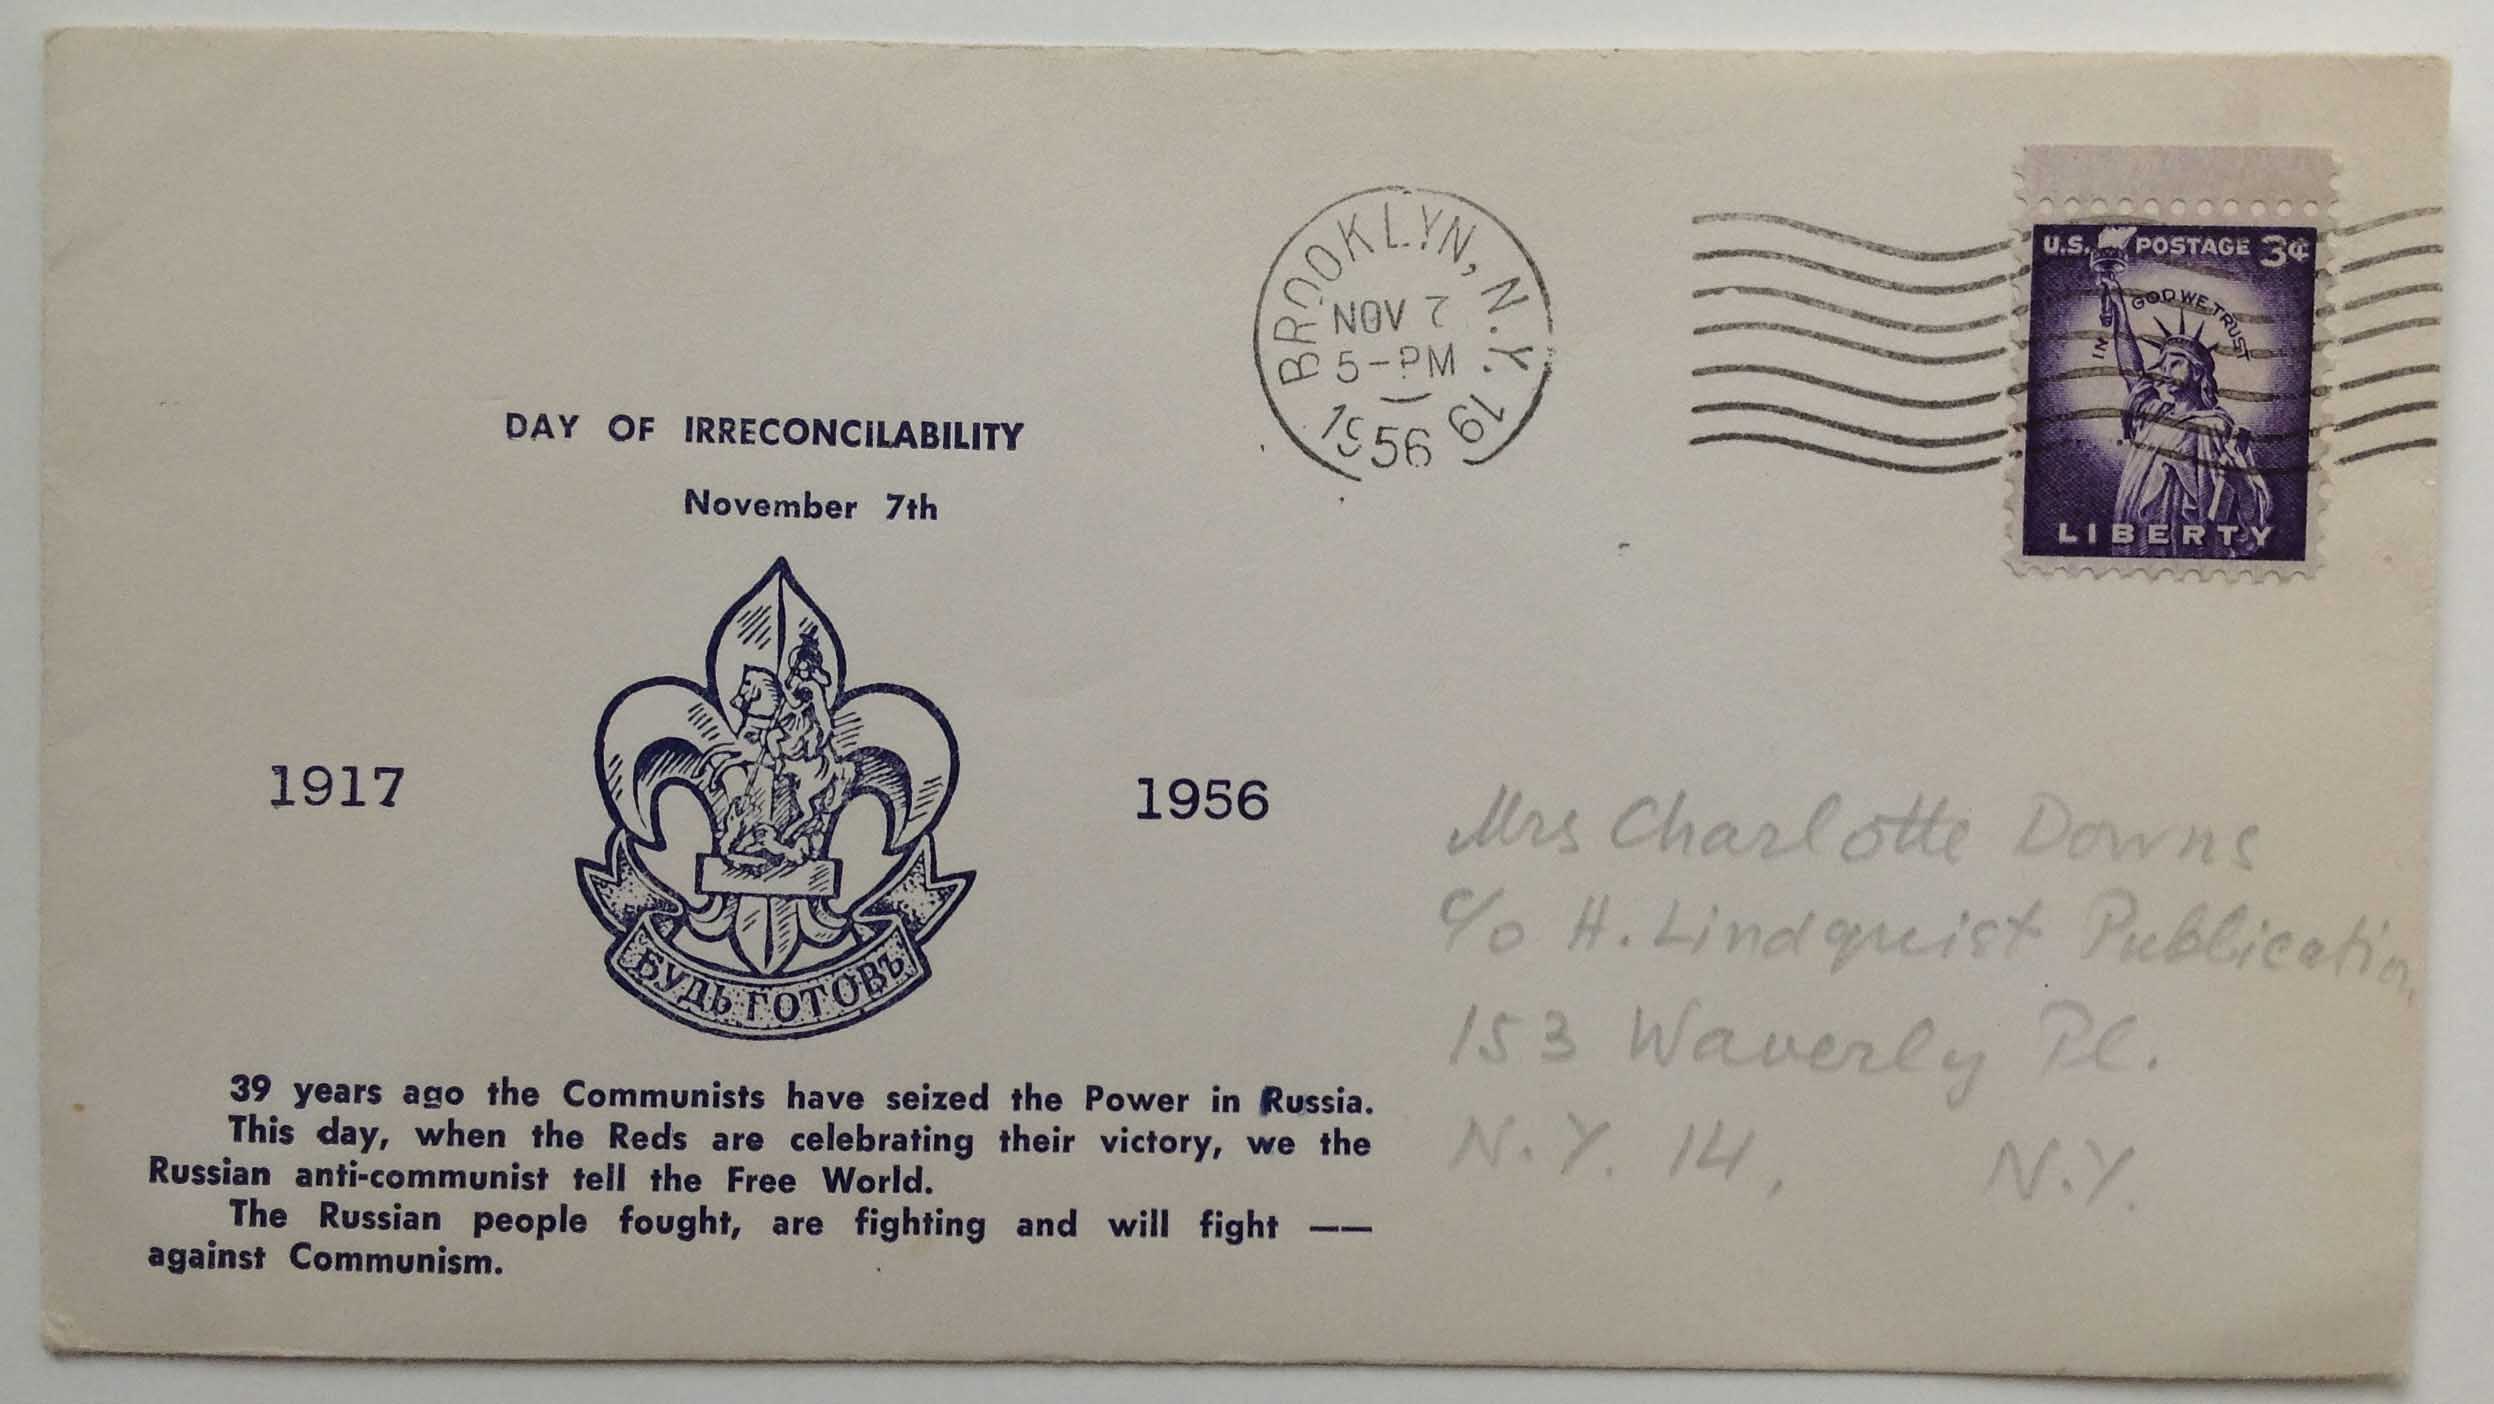 DAY OF IRRECONCILABILITY
November 7th
1917
1956
БУДЬ ГОТОВЪ
39 years ago the Communists have seized the Power in Russia.
This day, when the Reds are celebrating their victory, we the
Russian anti-communist tell the Free World.
The Russian people fought, are fighting and will fight ——
against Communism.
BROOKLYN, N.Y. 19
NOV 7
5-PM
1956
U.S. POSTAGE 3¢
IN GOD WE TRUST
LIBERTY
Mrs Charlotte Downs
c/o H. Lindquist Publication
153 Waverly Pl.
N.Y. 14, N.Y.